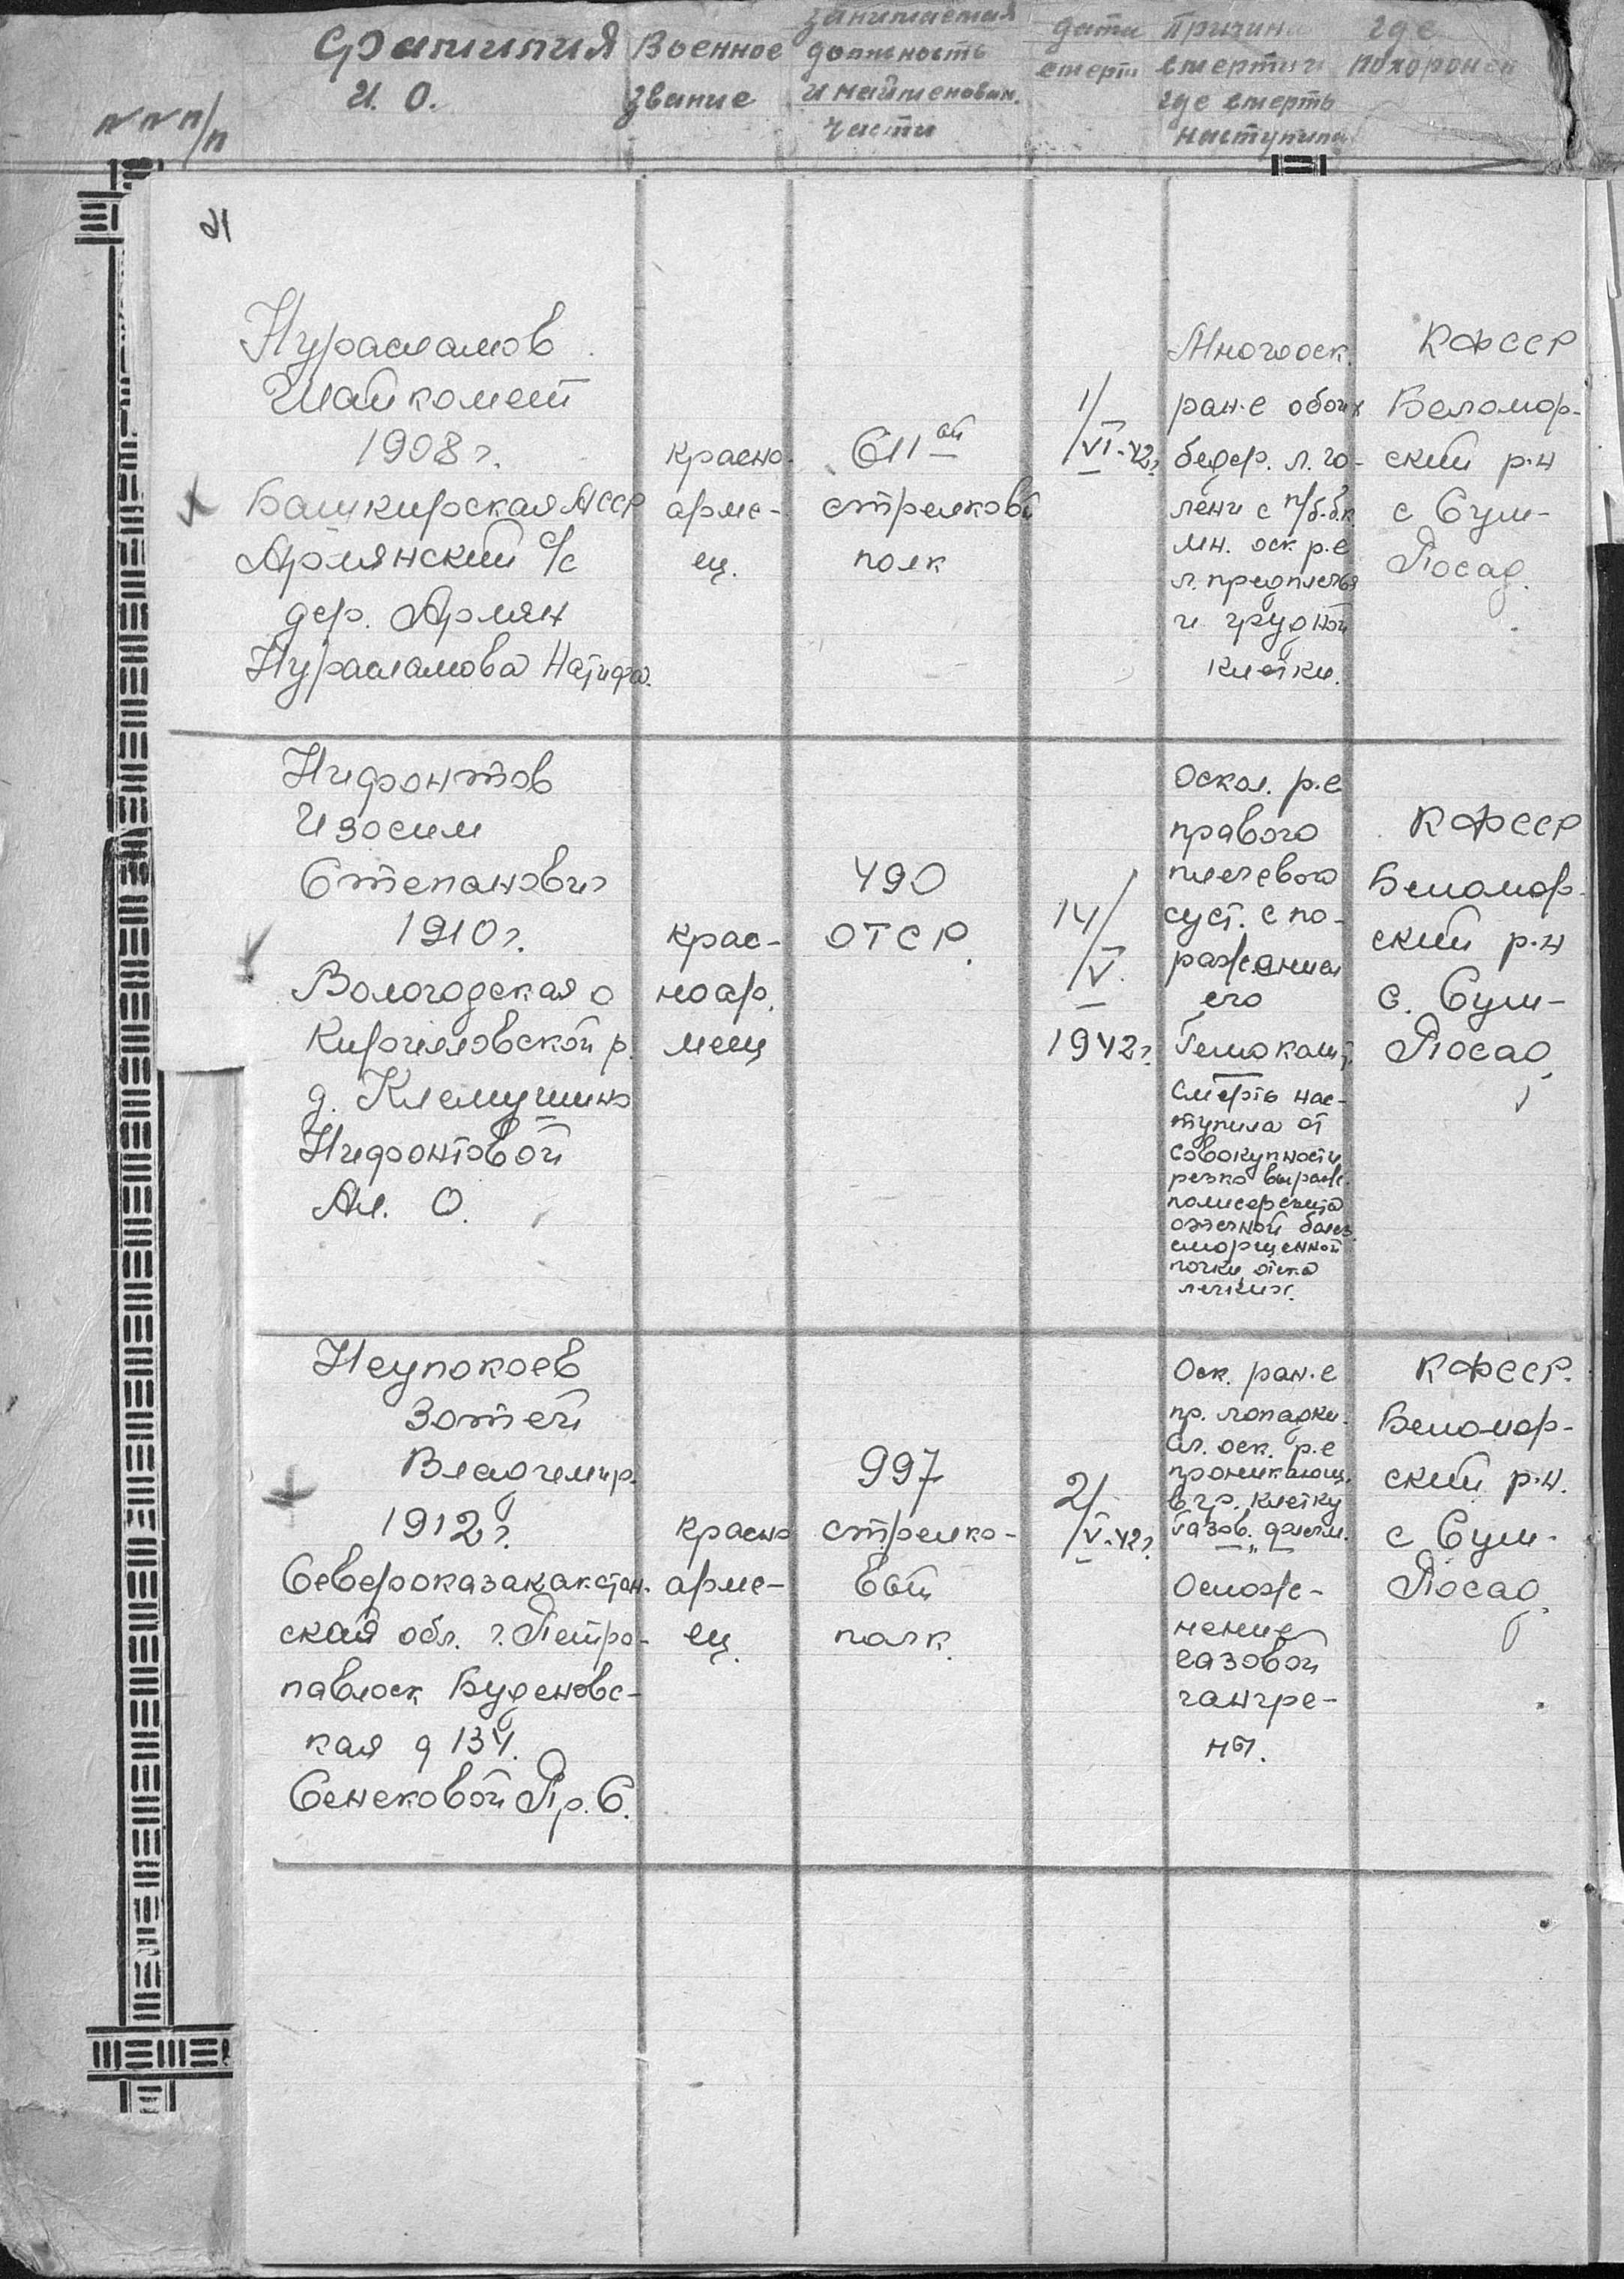 №№ п/п
Фамилия
И. О.
Военное
звание
занимаемая
должность
и наименован.
части
дата
смерти
Причина
смерти и
где смерть
наступила
где
похоронен
Нурасламов
Шайкомет
1908 г.
Башкирская АССР
Армянский с/с
дер. Армян
Нурасламова
красно-
арме-
ец.
611 ой
стрелковый
полк
1/
VI-42г.
Многооск.
ран-е обоих
бедер. л. го-
лени с п/б.б.к.
мн. оск. р-е
л. предплечья
и грудной
клетки.
КФССР
Беломор-
ский р-н
с Сум-
Посад.
Нифонтов
Изосим
Степанович
1910 г.
Вологодская о
Кирилловской р.
д. Клемушино
Нифонтовой
Ал. О.
крас-
ноар.
меец
490
ОТСР.
14/
V
1942 г.
Оскол. р-е
правого
плечевого
суст. с по-
ражением
его
Смерть нас-
тупила от
совокупности
резко выраж.
полисерозита
сморщенной
почки, отека
легких.
КФССР
Беломор-
ский р-н
с. Сум-
Посад
Неупокоев
Зотей
Владимир.
1912 г.
Североказакакстан.
ская обл. г. Петро-
павлоск Буденовс-
кая д 134.
Сенековой Пр. С.
красно
арме-
ец.
997
стрелко-
вый
полк.
2/
V-42г.
Оск. ран-е
пр. лопадки.
Сл. оск. р-е
проникающ.
в гр. клетку
газов. флегм.
Осложе-
нение
газовой
гангре-
ны.
КФССР.
Беломор-
ский р-н.
с Сум-
Посад